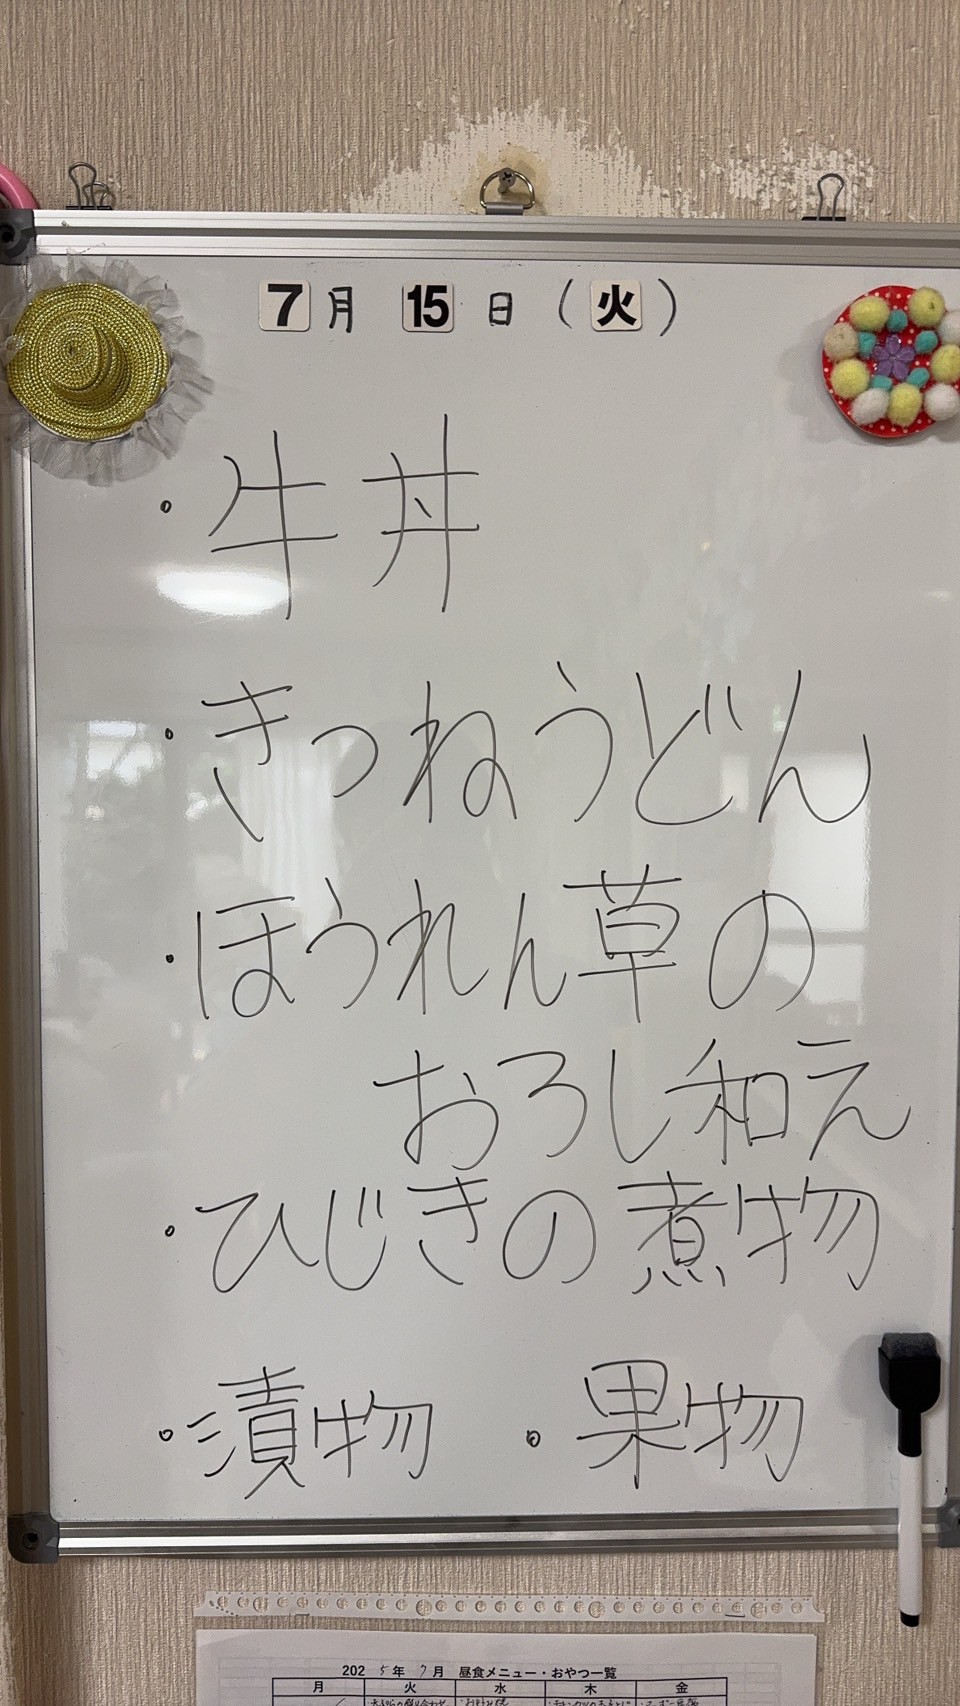 7月 15日（火）
・牛丼
・きつねうどん
・ほうれん草の
おろし和え
・ひじきの煮物
・漬物 ・果物
2025年7月 昼食メニュー・おやつ一覧
月 火 水 木 金